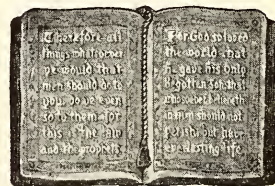 Therefore all
things whatsoever
ye would that
men should do to
you, do ye even
so to them: for
this is the law
and the prophets
For God so loved
the world that
he gave his only
begotten son, that
whosoever believeth
in him should not
perish but have
everlasting life